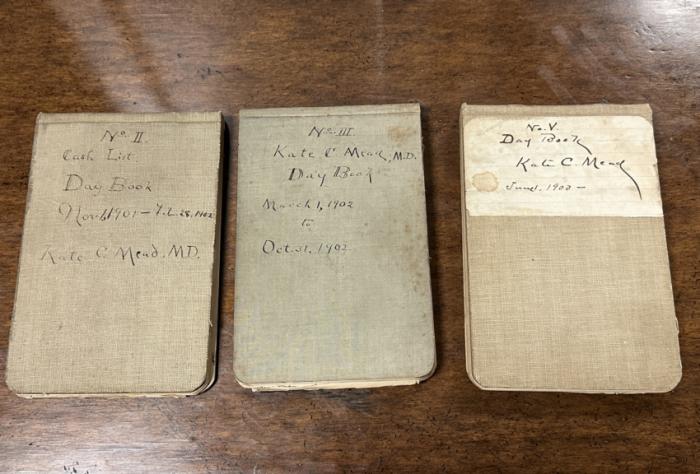 No. II.
Cash List.
Day Book
Nov. 1901 - Feb. 28, 1902
Kate C. Mead, MD.
No. III.
Kate C. Mead, M.D.
Day Book
March 1, 1902
to
Oct. 31, 1902
No. V.
Day Book
Kate C. Mead
June 1, 1903 -